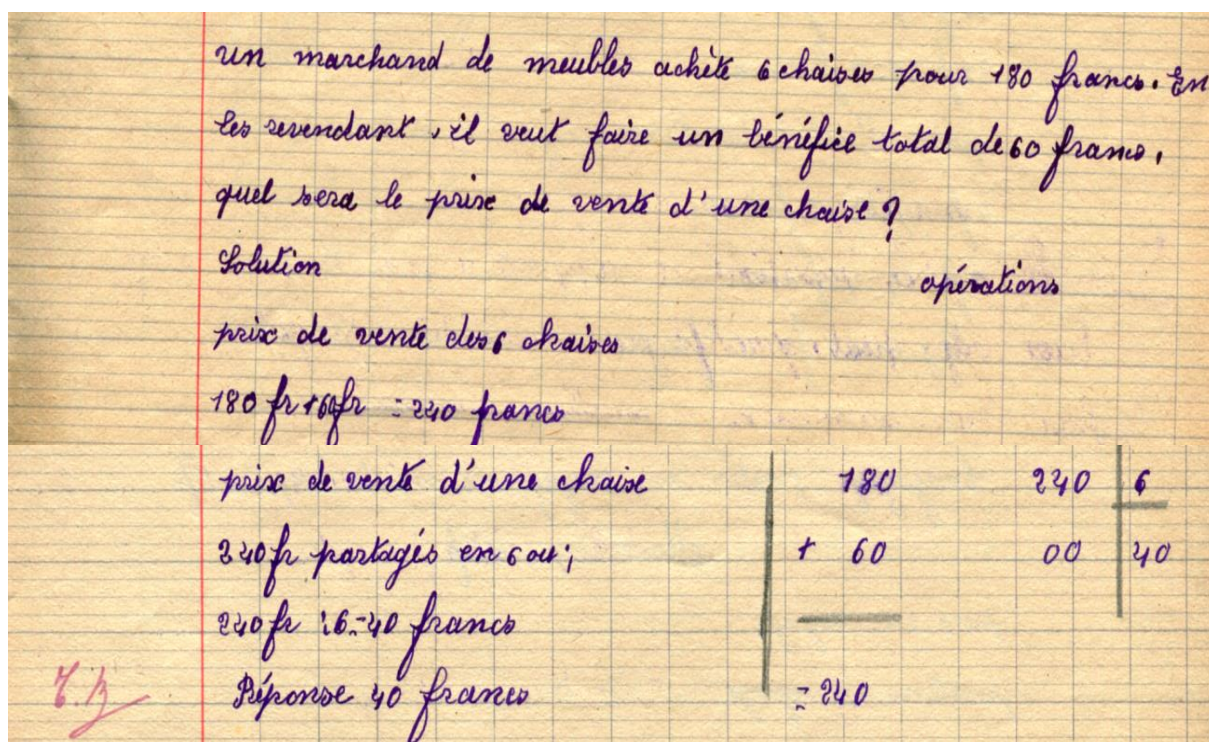 un marchand de meubles achète 6 chaises pour 180 francs. En
les revendant, il veut faire un bénéfice total de 60 francs,
quel sera le prix de vente d'une chaise ?
Solution
opérations
prix de vente des 6 chaises
180 fr + 60 fr = 240 francs
prix de vente d'une chaise
240 fr partagés en 6 ou;
240 fr : 6 = 40 francs
Réponse 40 francs
180
+ 60
= 240
240 6
00 40
T.B